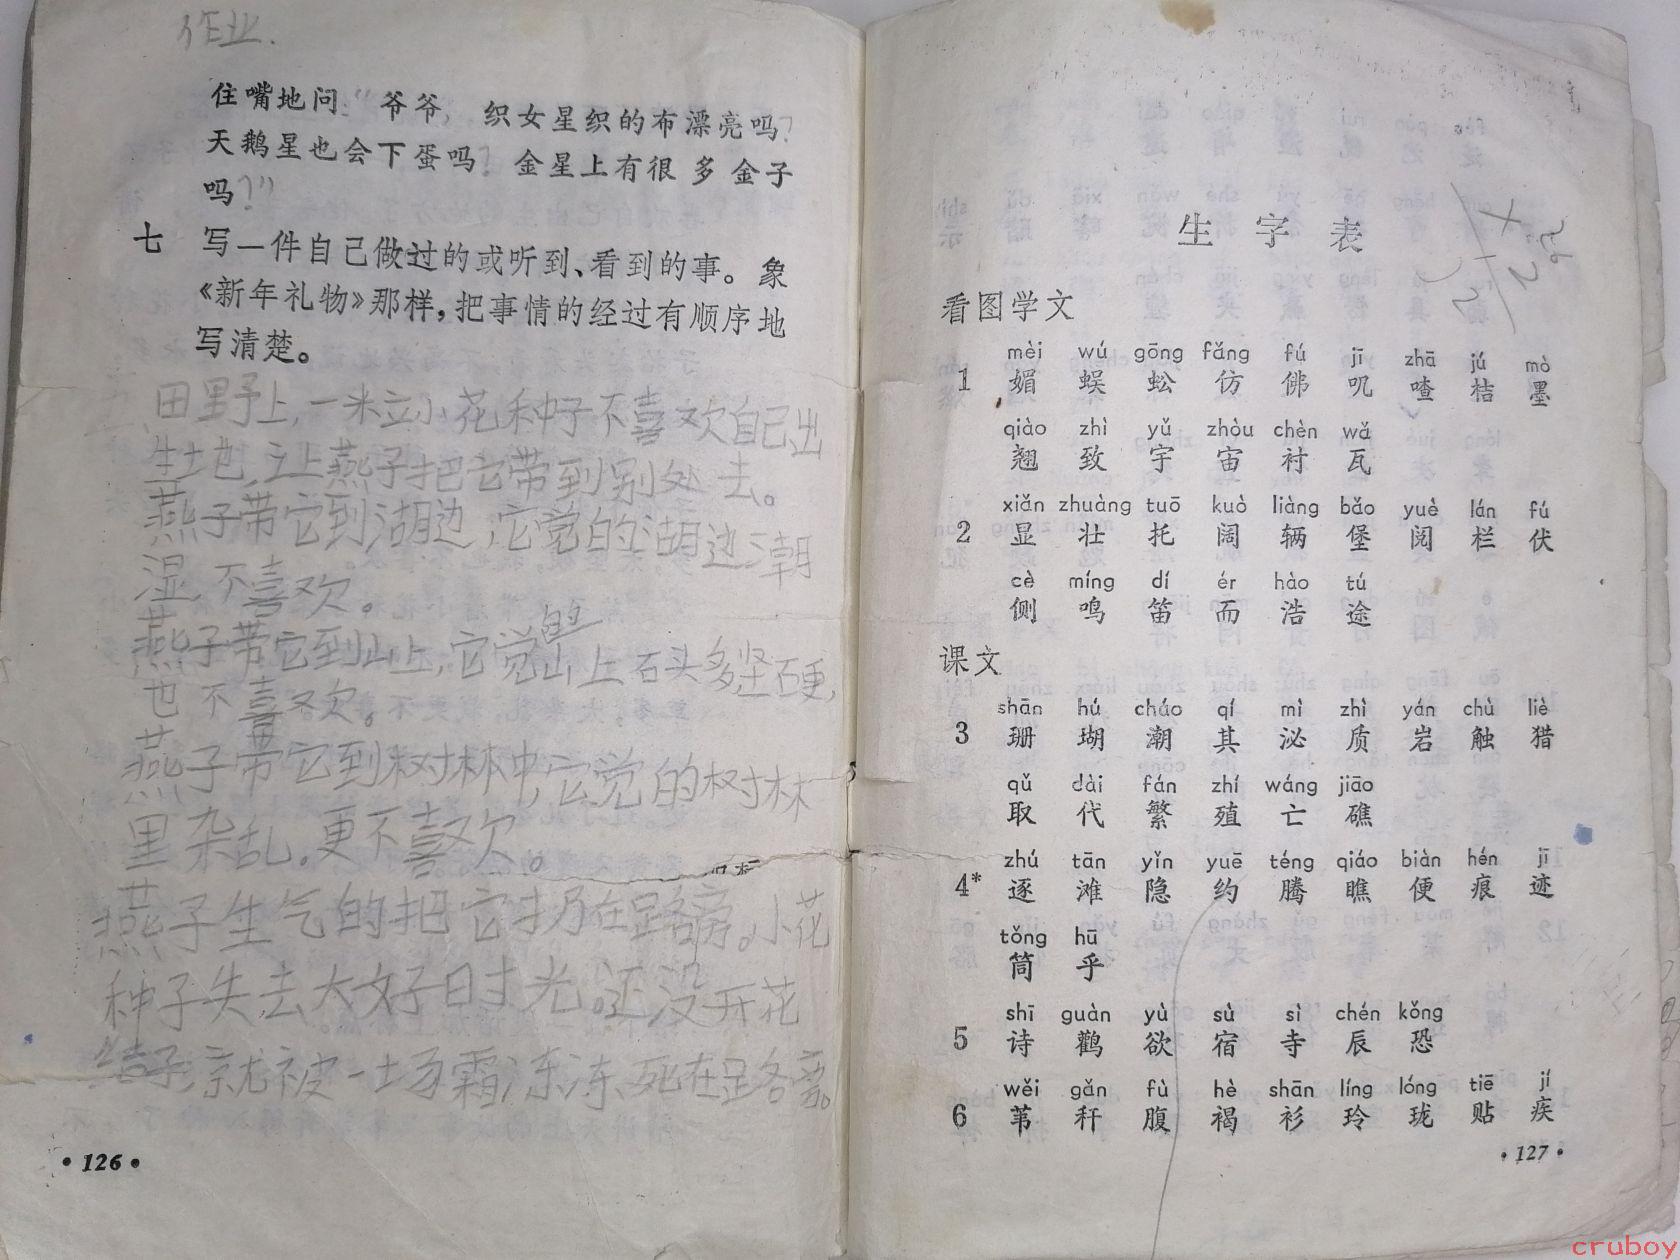 作业.
住嘴地问:“爷爷, 织女星织的布漂亮吗?
天鹅星也会下蛋吗? 金星上有很多金子
吗?”
七 写一件自己做过的或听到、看到的事。象
《新年礼物》那样,把事情的经过有顺序地
写清楚。
田野上,一米立小花种子不喜欢自己出
生土也,让燕子把它带到别处去。
燕子带它到湖边,它觉的湖边潮
湿,不喜欢。
燕子带它到山上,它觉的山上石头多坚石更,
也不喜欢。
燕子带它到树林中,它觉的树林
里杂乱。更不喜欢。
燕子生气的把它扔在路旁。小花
种子失去大好时光。还没开花
结子,就被一场霜冻冻死在路旁。
•126•
生字表
看图学文
mèi wú gōng fǎng fú jī zhā jú mò
1 媚 蜈 蚣 仿 佛 叽 喳 桔 墨
qiào zhì yǔ zhòu chèn wǎ
翘 致 宇 宙 衬 瓦
xiǎn zhuàng tuō kuò liàng bǎo yuè lán fú
2 显 壮 托 阔 辆 堡 阅 栏 伏
cè míng dí ér hào tú
侧 鸣 笛 而 浩 途
课文
shān hú cháo qí mì zhì yán chù liè
3 珊 瑚 潮 其 泌 质 岩 触 猎
qǔ dài fán zhí wáng jiāo
取 代 繁 殖 亡 礁
zhú tān yǐn yuē téng qiáo biàn hén jī
4* 逐 滩 隐 约 腾 瞧 便 痕 迹
tǒng hū
筒 乎
shī guàn yù sù sì chén kǒng
5 诗 鹳 欲 宿 寺 辰 恐
wěi gǎn fù hè shān líng lóng tiē jí
6 苇 秆 腹 褐 衫 玲 珑 贴 疾
•127•
cruboy